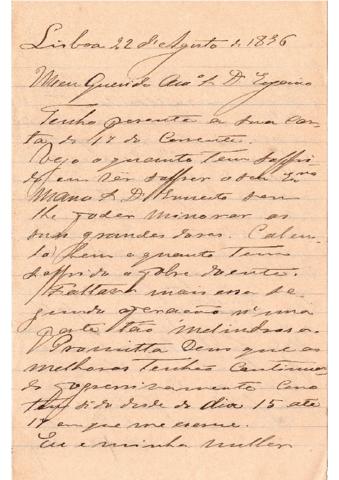 Lisboa 22 de Agosto de 1896
Meu Querido Amº Sr. D. Eugenio
Tenho presente a sua car-
ta de 17 do Corrente.
Vejo o quanto tem soffri-
do em ver soffrer o seu Exmo
Mano Sr. D. Ernesto sem
lhe poder minorar as
suas grandes dores. Calcu-
lo bem o quanto tem
soffrido o pobre doente.
Faltava mais essa se-
gunda operação n'uma
parte tão melindrosa.
Promitta Deus que as
melhoras tenhão continua-
do progressivamente como
tem sido desde o dia 15 até
17 em que me escreve.
Eu e minha mulher